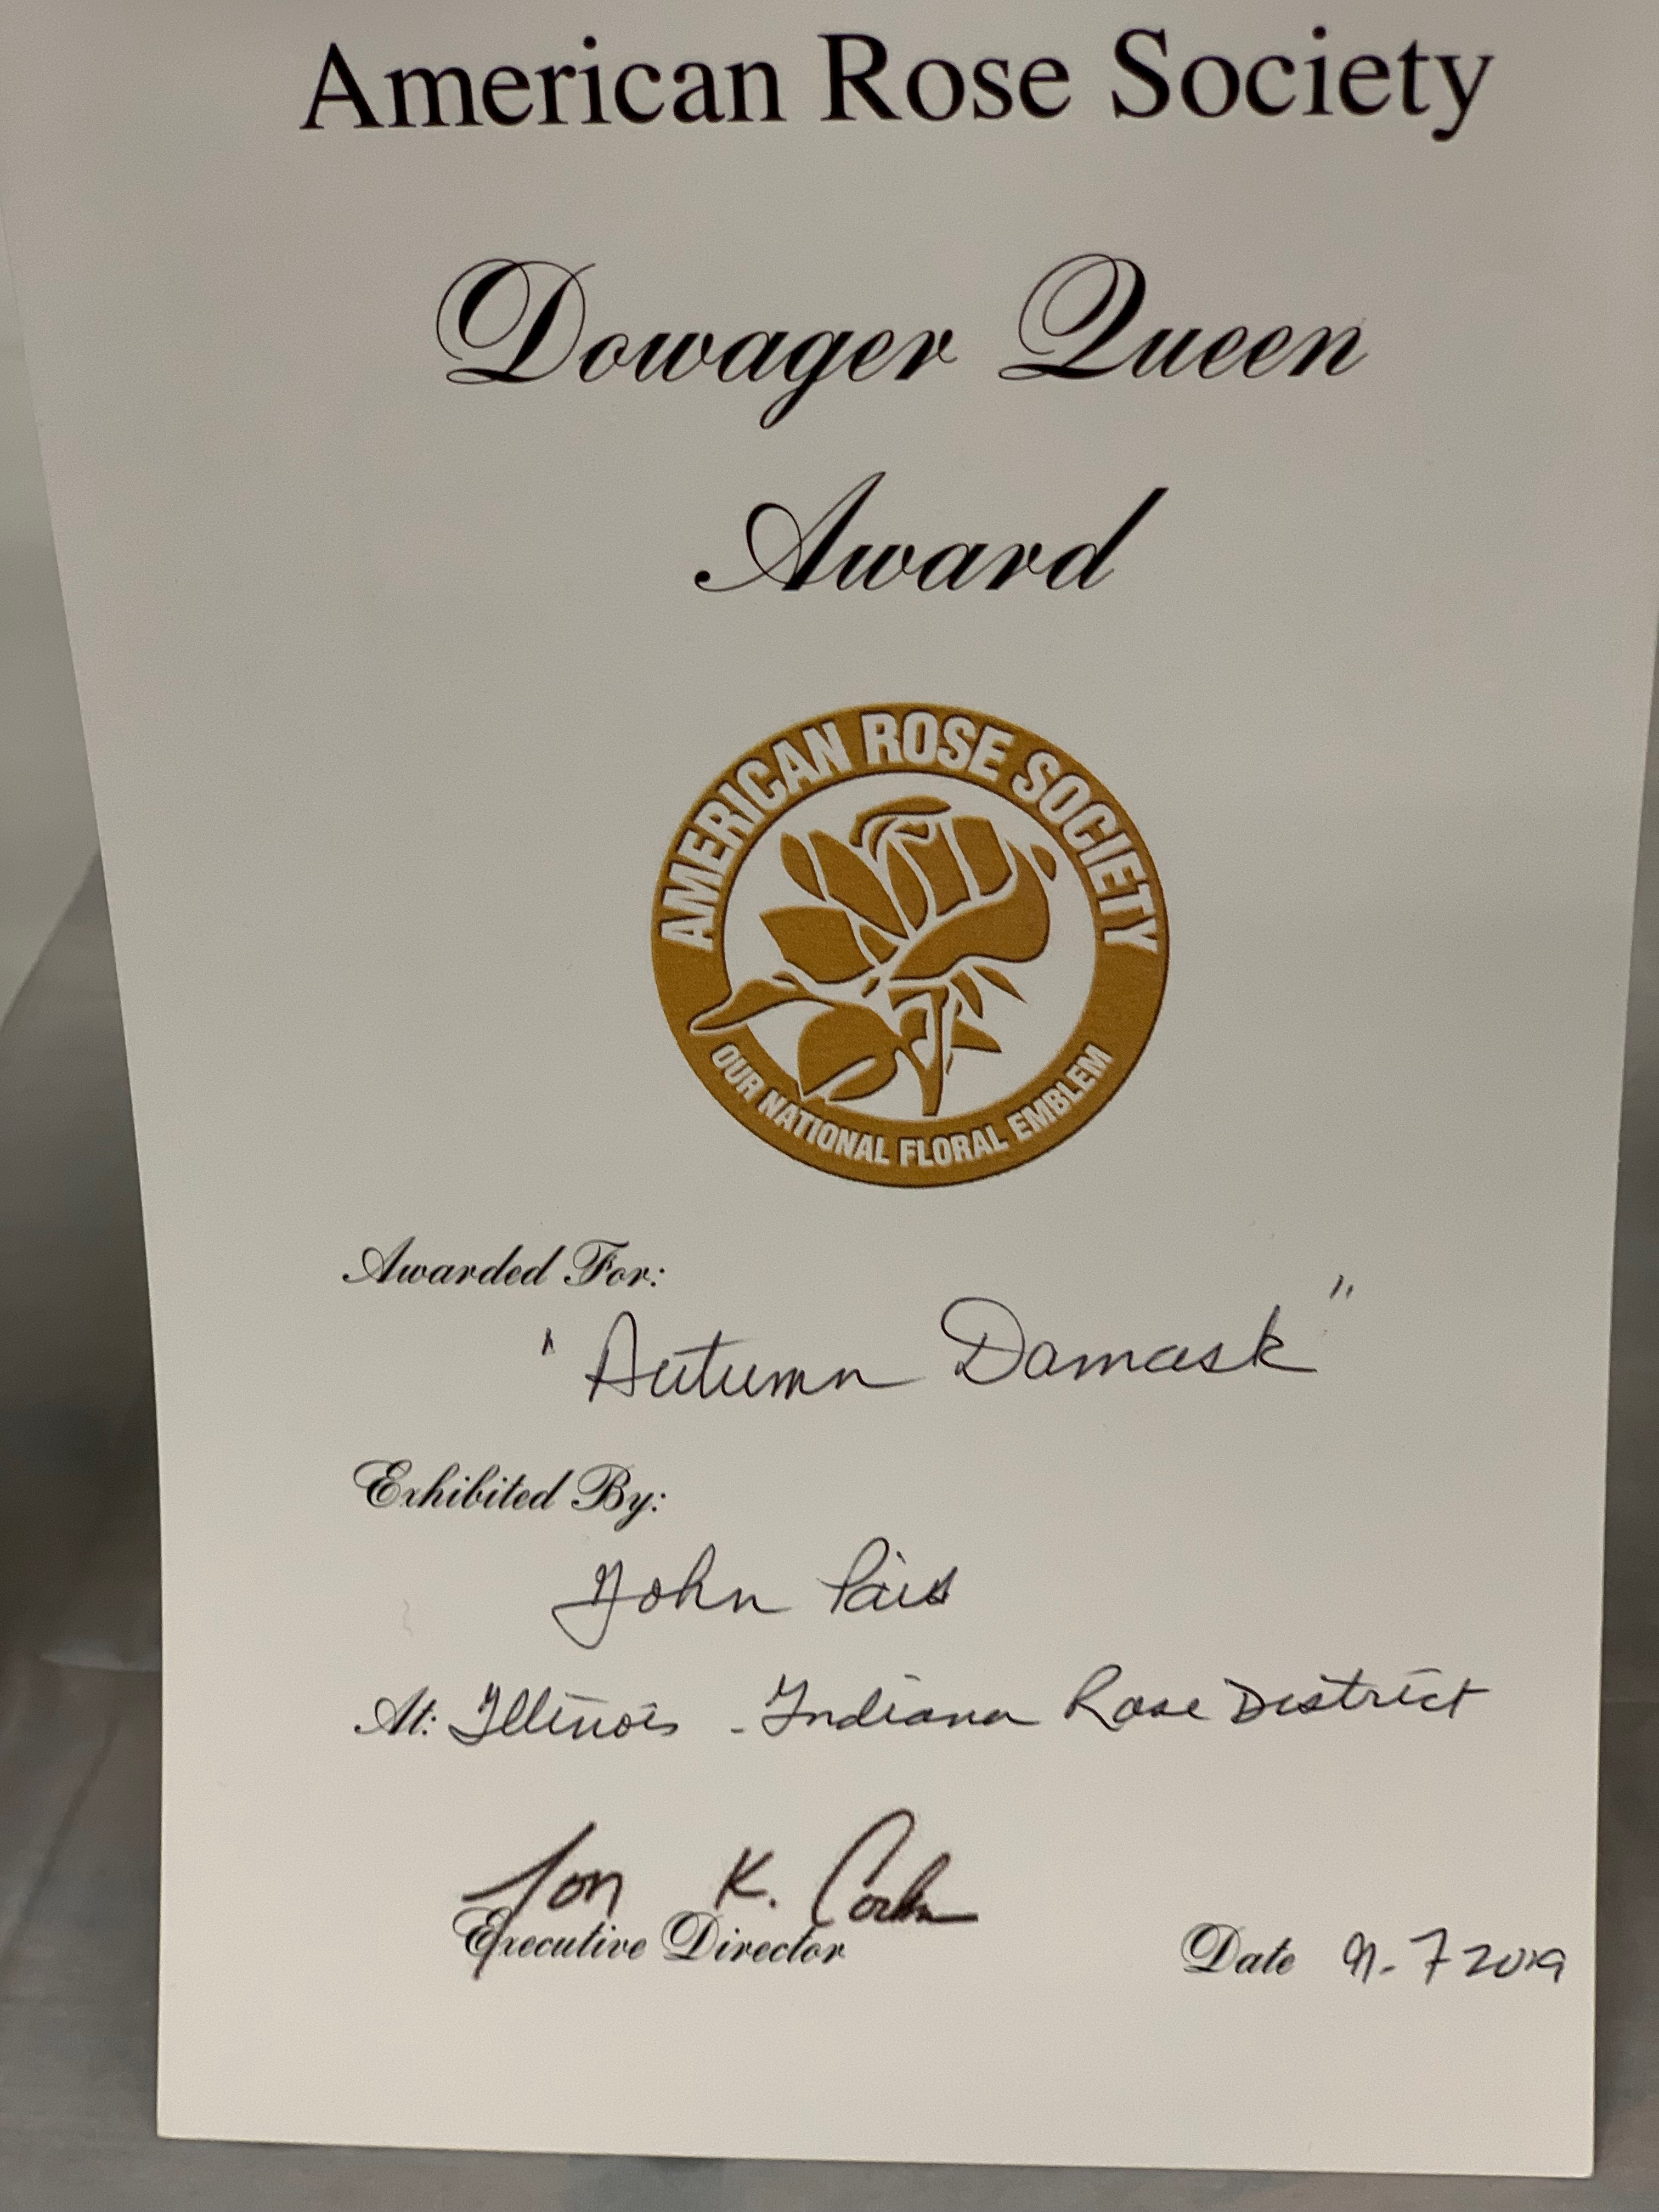 American Rose Society
Dowager Queen
Award
AMERICAN ROSE SOCIETY
OUR NATIONAL FLORAL EMBLEM
Awarded For:
"Autumn Damask"
Exhibited By:
John
At: Illinois - Indiana Rose District
Jon K.
Executive Director
Date 9-7 2019